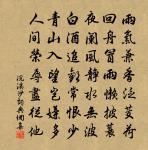 雨氣兼香泛芰荷
回舟冒雨懶披蓑
夜闌風靜水無波
白酒追歡常恨少
青山入望豈嫌多
人間榮辱盡從他
浣溪沙詞典網集